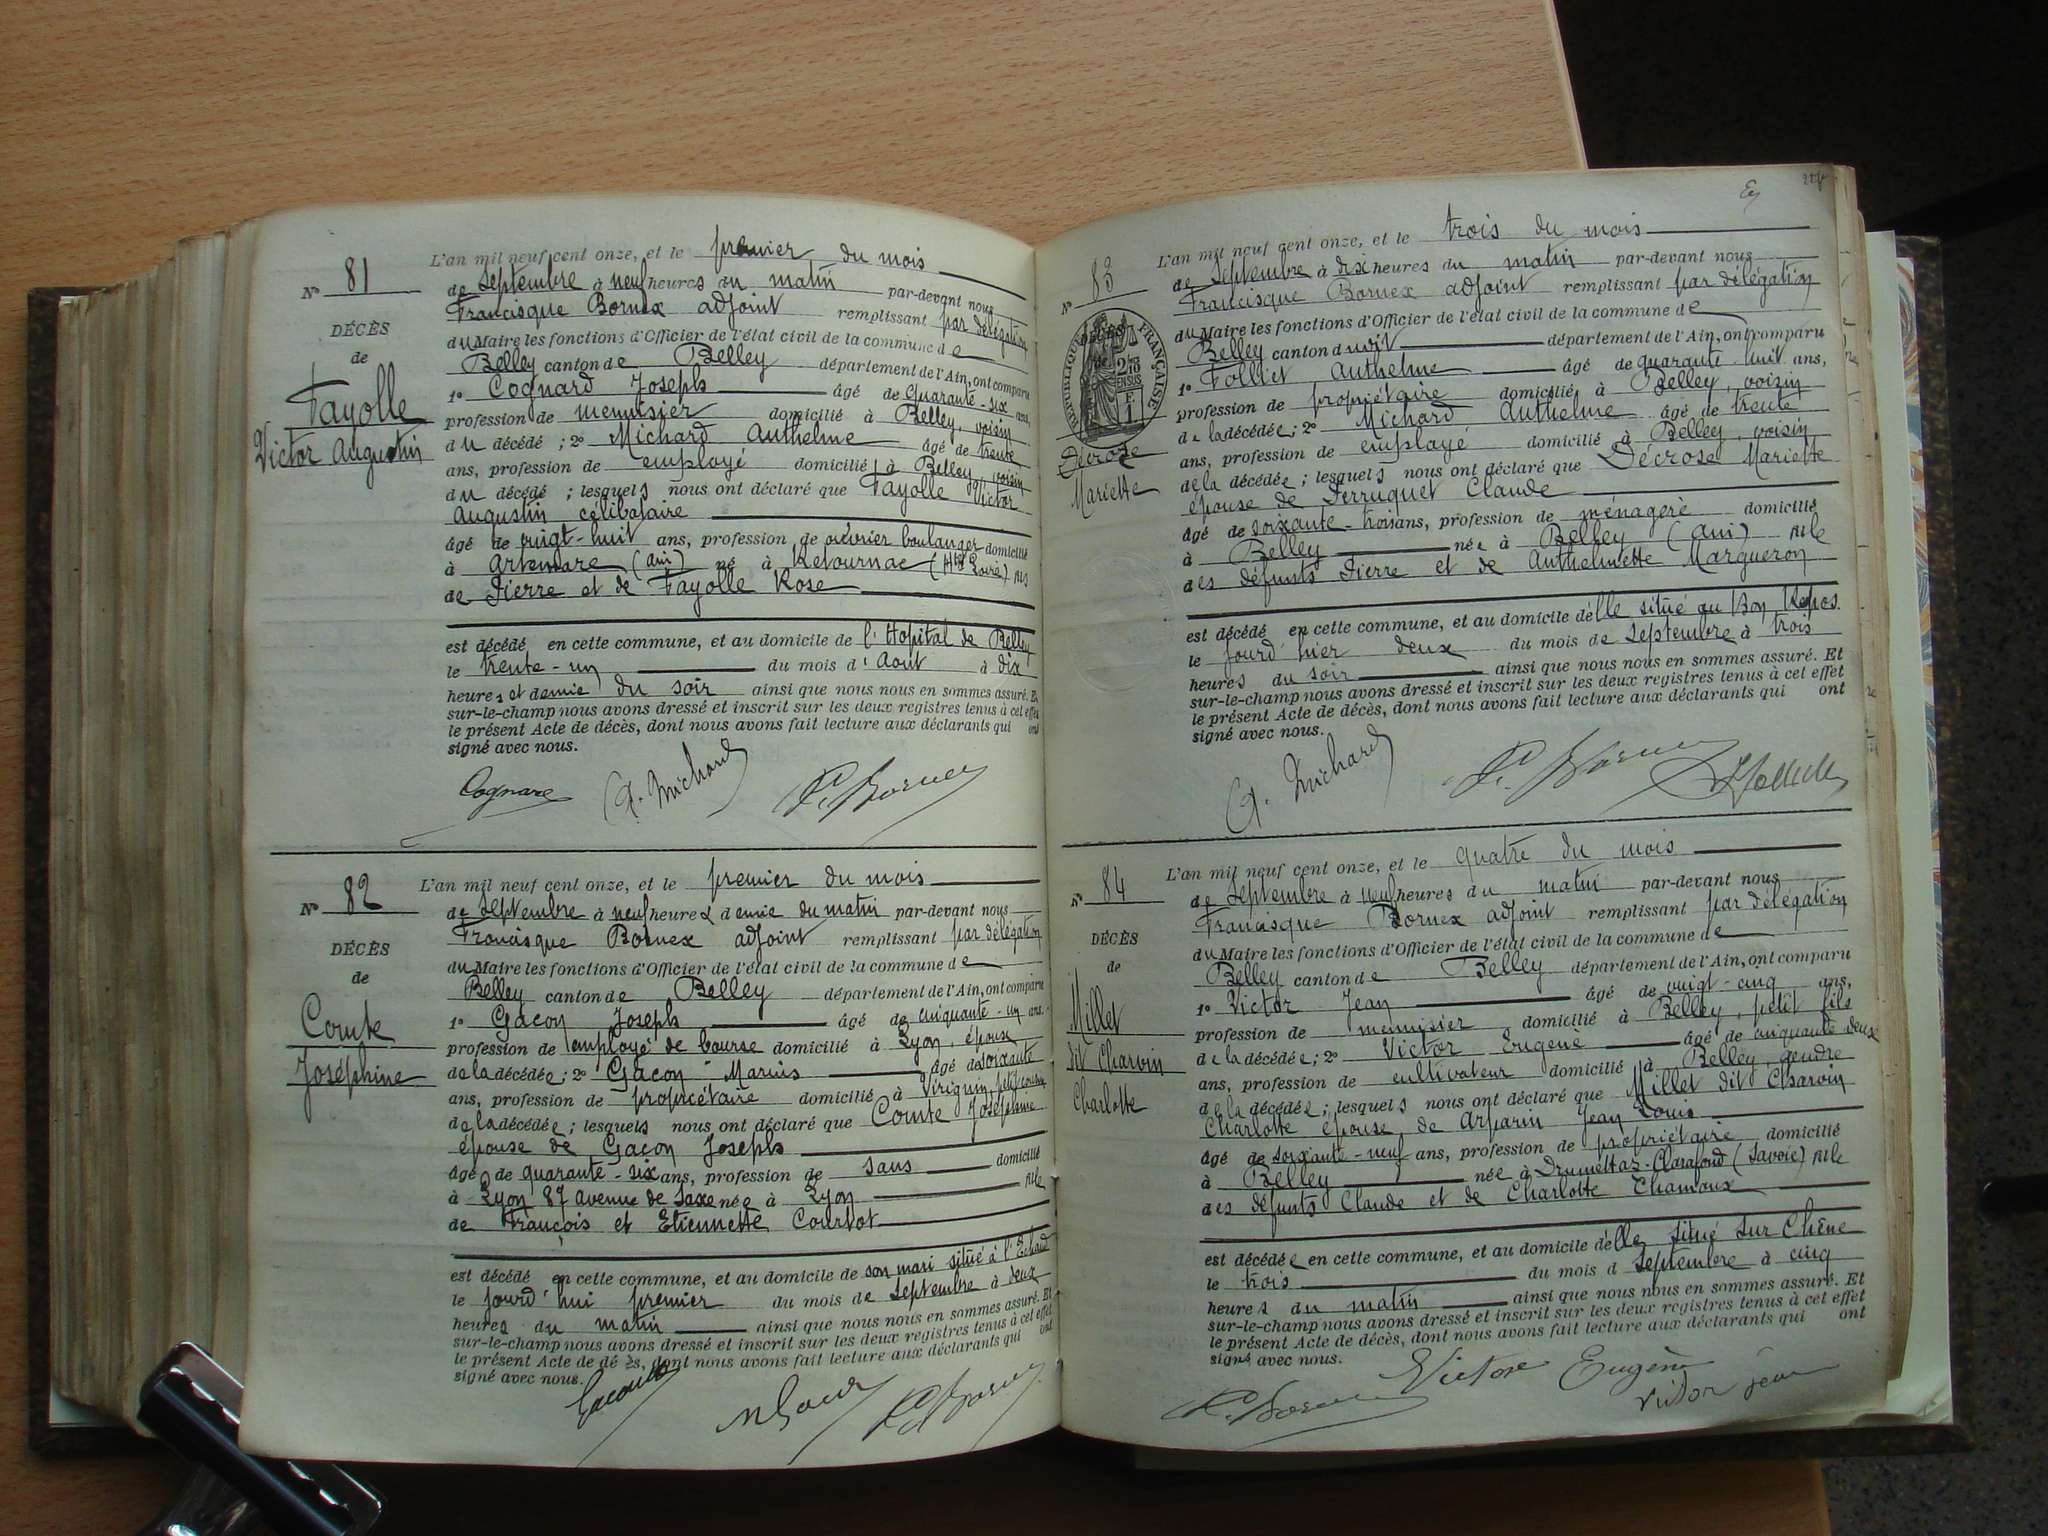 L'an mil neuf cent onze, et le premier du mois
Nº 81
de Septembre à neuf heures du matin par-devant nous
Francisque Bornex adjoint remplissant par délégation
DÉCÈS
du Maire les fonctions d'Officier de l'état civil de la commune de
de
Belley canton de Belley département de l'Ain, ont comparu
Fayolle
1º Cognard Joseph âgé de quarante-six ans,
profession de menuisier domicilié à Belley, voisin
Victor Augustin
du décédé ; 2º Michard Anthelme âgé de trente
ans, profession de employé domicilié à Belley, voisin
du décédé ; lesquels nous ont déclaré que Fayolle Victor
Augustin célibataire
âgé de vingt-huit ans, profession de ouvrier boulanger domicilié
à Artemare (Ain) né à Retournac (Hte Loire) fils
de Pierre et de Fayolle Rose
est décédé en cette commune, et au domicile de l'Hopital de Belley
le trente-un du mois d'Août à dix
heures et demie du soir ainsi que nous nous en sommes assuré. Et
sur-le-champ nous avons dressé et inscrit sur les deux registres tenus à cet effet
le présent Acte de décès, dont nous avons fait lecture aux déclarants qui ont
signé avec nous.
Cognard A. Michard F. Bornex
L'an mil neuf cent onze, et le premier du mois
Nº 82
de Septembre à neuf heures & demie du matin par-devant nous
Francisque Bornex adjoint remplissant par délégation
DÉCÈS
du Maire les fonctions d'Officier de l'état civil de la commune de
de
Belley canton de Belley département de l'Ain, ont comparu
Comte
1º Gacon Joseph âgé de cinquante-un ans.
profession de employé de bourse domicilié à Lyon, époux
Joséphine
de la décédée ; 2º Gacon Marius âgé de soixante
ans, profession de propriétaire domicilié à Virignin, petit cousin
de la décédée ; lesquels nous ont déclaré que Comte Joséphine
épouse de Gacon Joseph
âgé de quarante-six ans, profession de sans domicilié
à Lyon 87 avenue de Saxe née à Lyon fille
de François et Etiennette Courtot
est décédé en cette commune, et au domicile de son mari situé à l'Echaud
le jourd'hui premier du mois de Septembre à deux
heures du matin ainsi que nous nous en sommes assuré. Et
sur-le-champ nous avons dressé et inscrit sur les deux registres tenus à cet effet
le présent Acte de décès, dont nous avons fait lecture aux déclarants qui ont
signé avec nous.
M Gacon F. Bornex
L'an mil neuf cent onze, et le trois du mois
Nº 83
de Septembre à dix heures du matin par-devant nous
Francisque Bornex adjoint remplissant par délégation
DÉCÈS
RÉPUBLIQUE FRANÇAISE
du Maire les fonctions d'Officier de l'état civil de la commune de
Belley canton dudit département de l'Ain, ont comparu
1º Folliet Anthelme âgé de quarante-huit ans,
profession de propriétaire domicilié à Belley, voisin
de la décédée ; 2º Michard Anthelme âgé de trente
Décrose
ans, profession de employé domicilié à Belley, voisin
Mariette
de la décédée ; lesquels nous ont déclaré que Décrose Mariette
épouse de Perruquet Claude
âgé de soixante-trois ans, profession de ménagère domicilié
à Belley née à Belley (Ain) fille
des défunts Pierre et de Anthelmette Margueron
est décédé en cette commune, et au domicile d'elle situé au Bon Repos.
le jourd'hier deux du mois de Septembre à trois
heures du soir ainsi que nous nous en sommes assuré. Et
sur-le-champ nous avons dressé et inscrit sur les deux registres tenus à cet effet
le présent Acte de décès, dont nous avons fait lecture aux déclarants qui ont
signé avec nous.
A. Michard F. Bornex
L'an mil neuf cent onze, et le quatre du mois
Nº 84
de Septembre à neuf heures du matin par-devant nous
Francisque Bornex adjoint remplissant par délégation
DÉCÈS
du Maire les fonctions d'Officier de l'état civil de la commune de
de
Belley canton de Belley département de l'Ain, ont comparu
Millet
1º Victor Jean âgé de vingt-cinq ans,
profession de menuisier domicilié à Belley, petit fils
dit Charvin
de la décédée ; 2º Victor Eugène âgé de cinquante deux
Charlotte
ans, profession de cultivateur domicilié à Belley, gendre
de la décédée ; lesquels nous ont déclaré que Millet dit Charvin
Charlotte épouse de Arparin Jean Louis
âgé de soixante-neuf ans, profession de propriétaire domicilié
à Belley née à Drumettaz-Clarafond (Savoie) fille
des défunts Claude et de Charlotte Chamoux
est décédée en cette commune, et au domicile d'elle situé sur Chêne
le trois du mois d Septembre à cinq
heures du matin ainsi que nous nous en sommes assuré. Et
sur-le-champ nous avons dressé et inscrit sur les deux registres tenus à cet effet
le présent Acte de décès, dont nous avons fait lecture aux déclarants qui ont
signé avec nous.
F. Bornex Victor Eugène
Victor Jean